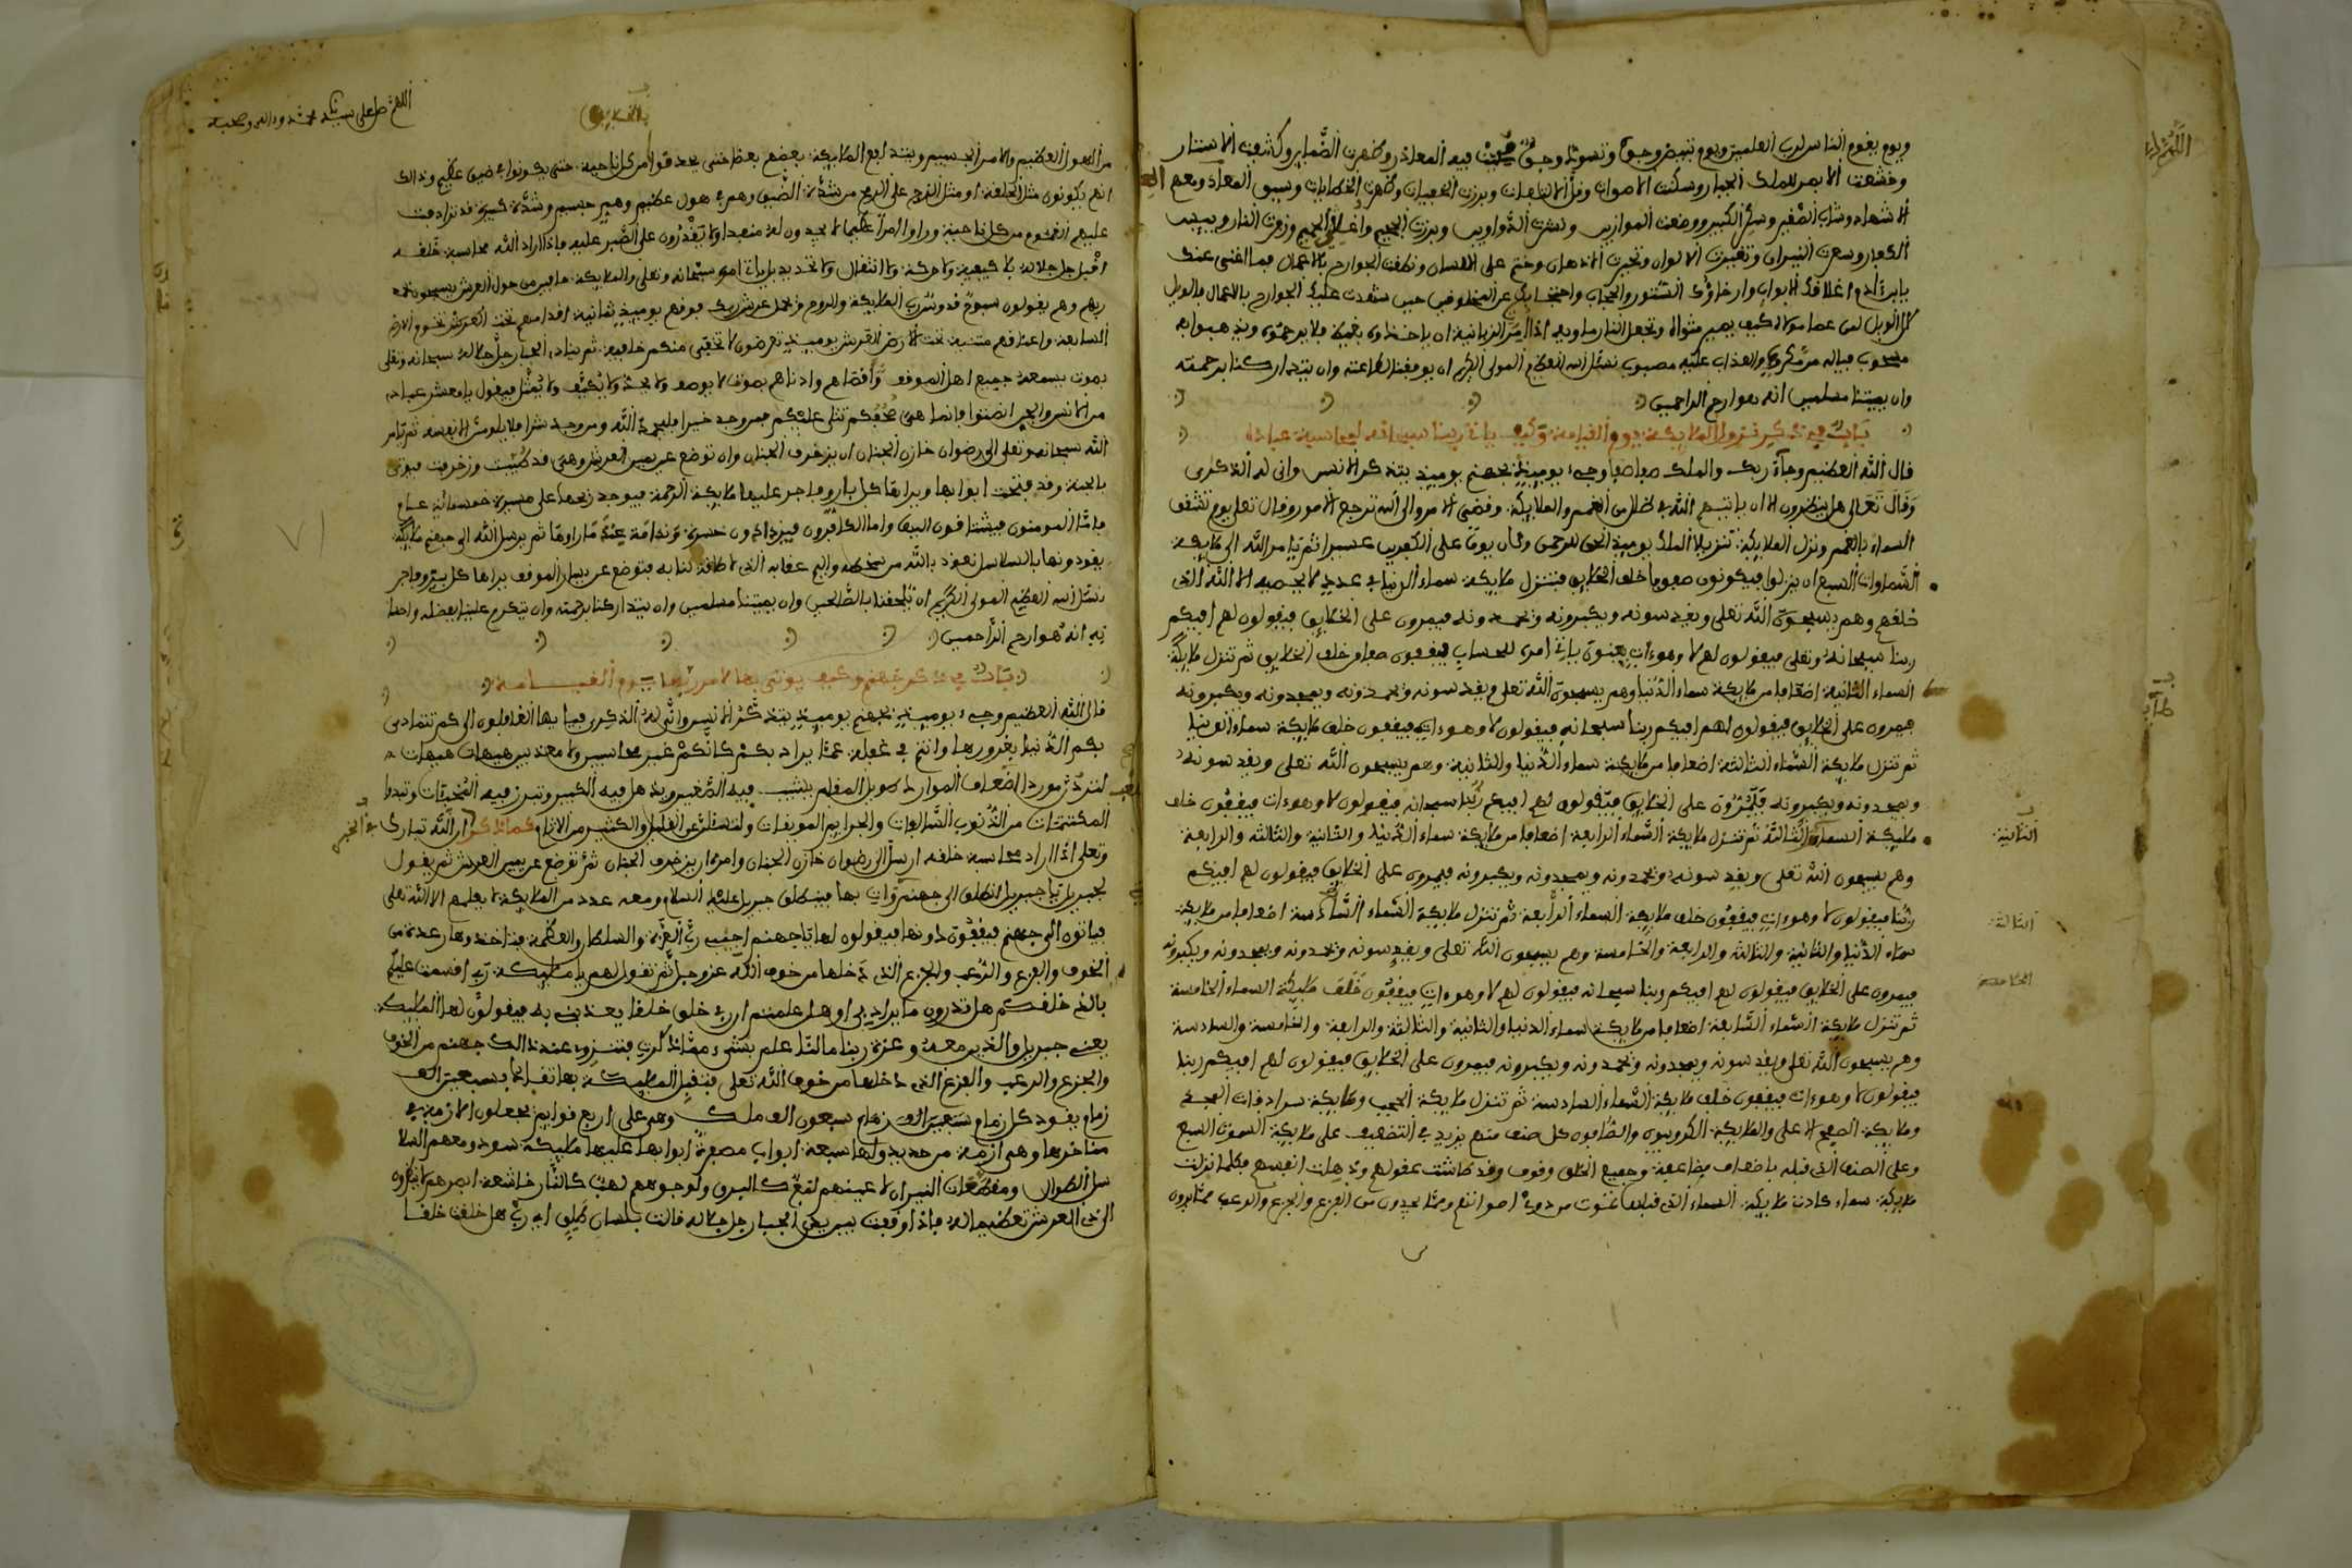 ويوم يقوم الناس لرب العلمين ويوم تبيض وجوه وتسود وجوه فيه المعاذر وظهرت الضماير وكشفت الاستار
وخشعت الابصر للملك الجبار وسكنت الاصوات وقل الالتفات وبرزت الخفيات وظهرت الخطايات وسيق العباد ومعهم
الاشهاد وشاب الصغير وسكر الكبير ووضعت الموازين ونشرت الدواوين وبرزت الجحيم واغلي الحميم وزفرت النار ويييس
الكفار وسعرت النيران وتغيرت الالوان وتحيرت الاذهان وختم على اللسان ونطقت الجوارح بالاعمال فما الغنى عندك
يابن ادم اغلاقك الابواب وارخاؤك الستور والحجاب واحتجابك عن المخلوقين حين شهدت عليك الجوارح بالاعمال فالويل
كل الويل لمن عصا مولاه كيف يصير مثواه وتجعل النار ماويه اذا امر الزبانية ان ياخذاوه بغيظ فلا يرحموه ويذهبوا به
مسحوب فياله من مكروب والعذاب عليه مصبوب نسئل الله العظيم المولى الكريم ان يوفقنا لطاعته وان يتداركنا برحمته
وان يميتنا مسلمين انه هو ارحم الراحمين
باب في ذكر نزول الملايكة يوم القيامة وكيف ياتي ربنا سبحانه لمحاسبة عباده
قال الله العظيم وجآء ربك والملك صفا صفا وجيء يوميذ بجهنم يوميذ يتذكر الانسن وانى له الذكرى
وقال تعالى هل ينظرون الا ان ياتيهم الله في ظلل من الغمم والملايكة وقضي الامر والى الله ترجع الامور وقال تعلى يوم تشقق
السماء بالغمم ونزل الملايكة تنزيلا الملك يوميذ الحق للرحمن وكان يوما على الكفرين عسيرا ثم يامر الله الى ملايكة
السماوات السبع ان ينزلوا فيكونون صفوفا خلف الخلايق فتنزل ملايكة سماء الدنيا في عدد لا يحصيه الا الله الذي
خلقهم وهم يسبحون الله تعلى ويقدسونه ويكبرونه ويحمدونه فيمرون على الخلايق فيقولون لهم افيكم
ربنا سبحانه وتعلى فيقولون لهم لا وهو ءات يعنون ياتي امره للحساب فيقفون صفا خلف الخلايق ثم تنزل ملايكة
السماء الثانية اضعافا من ملايكة سماء الدنيا وهم يسبحون الله تعلى ويقدسونه ويحمدونه ويمجدونه ويكبرونه
فيمرون على الخلايق فيقولون لهم افيكم ربنا سبحانه فيقولون لا وهو ءات فيقفون خلف ملايكة سماء الدنيا
ثم تنزل ملايكة السماء الثالثة اضعافا من ملايكة سماء الدنيا والثانية وهم يسبحون الله تعلى ويقدسونه
ويمجدونه ويكبرونه فيمرون على الخلايق فيقولون لهم افيكم ربنا سبحانه فيقولون لا وهو ءات فيقفون خلف
مليكة السماء الثالثة ثم تنزل ملايكة السماء الرابعة اضعافا من ملايكة سماء الدنيا والثانية والثالثة والرابعة
الثانية
وهم يسبحون الله تعلى ويقدسونه ويحمدونه ويمجدونه ويكبرونه فيمرون على الخلايق فيقولون لهم افيكم
ربنا فيقولون لا وهو ءات فيقفون خلف ملايكة السماء الرابعة ثم تنزل ملايكة السماء السادسة اضعافا من ملايكة
الثالثة
سماء الدنيا والثانية والثالثة والرابعة والخامسة وهم يسبحون الله تعلى ويقدسونه ويحمدونه ويمجدونه ويكبرونه
فيمرون على الخلايق فيقولون لهم افيكم ربنا سبحانه فيقولون لهم لا وهو ءات فيقفون خلف مليكة السماء الخامسة
الخامسة
ثم تنزل ملايكة السماء السابعة اضعافا من ملايكة سماء الدنيا والثانية والثالثة والرابعة والخامسة والسادسة
وهم يسبحون الله تعلى ويقدسونه ويمجدونه ويحمدونه ويكبرونه فيمرون على الخلايق فيقولون لهم افيكم ربنا
فيقولون لا وهو ءات فيقفون خلف ملايكة السماء السادسة ثم تنزل ملايكة الحجب وملايكة سرادقات المجد
وملايكة الصفح الاعلى والملايكة الكروبيون والصافون كل صنف منهم يزيد في التضعيف على ملايكة السموت السبع
وعلى الصنف الذي قبله باضعاف مضاعفة وجميع الخلق وقوف وقد طاشت عقولهم وذهلت انفسهم فكلما نزلت
ملايكة سماء كادت ملايكة السماء التي قبلها تموت من دوي اصواتهم ومما يجدون من الفزع والجزع والرعب مما يرون
اللهم صل على سيدنا محمد وءاله وصحبه
من الهول العظيم والامر الجسيم ويتدافع الملايكة بعضهم بعظا حتى يحدقوا من كل ناحية حتى يكونوا في ضيق عظيم وذالك
انهم يكونون مثل الحلقة او مثل الزج على الرمح من شدة الضيق وهم في هول عظيم وهم جسيم وشدة كبيرة قد ترادفت
عليهم الغموم من كل ناحية وراوا امرا عظيما لا يجدون له منفدا ولا يقدرون على الصبر عليه فاذا اراد الله محاسبة خلقه
اقبل جل جلاله بلا كيفية ولا حركة ولا انتقال ولا تحديد بل ياتي امره سبحانه وتعلى والملايكة حافين من حول العرش يسبحون بحمد
ربهم وهم يقولون سبوح قدوس رب الملايكة والروح ويحمل عرش ربك فوقهم يوميذ ثمانية اقدامهم تحت العرش تخوم الارض
السابعة واعناقهم متنية تحت الارض العرش يوميذ تعرضون لا تخفى منكم خافية ثم ينادي الجبار جل جلاله سبحانه وتعلى
بصوت يسمعه جميع اهل الموقف وأقصاهم وادناهم بصوت لا يوصف ولا يحد ولا يكيف ولا يمثل فيقول يا معشر عبادي
من الانس والجن انصتوا فانما هي صحفكم تتلى عليكم فمن وجد خيرا فليحمد الله ومن وجد شرا فلا يلومن الا نفسه ثم يامر
الله سبحانه وتعلى الى رضوان خازن الجنان ان يزخرف الجنان وان توضع عن يمين العرش وهي قد طيبت وزخرفت فيوتى
بالجنة وقد فتحت ابوابها ويراها كل بار وفاجر عليها ملايكة الرحمة فيوجد ريحها على مسيرة خمسمائة عام
فاما المومنون فيشتاقون اليها واما الكافرون فيزدادون حسرة وندامة عند ما راوها ثم يرسل الله الى جهنم ملايكة
يقودونها بالسلاسل نعوذ بالله من سخطه واليم عقابه الذي لا طاقة لنا به فتوضع عن يسار الموقف يراها كل بر وفاجر
نسئل الله العظيم المولى الكريم ان يلحقنا بالصالحين وان يميتنا مسلمين وان يتداركنا برحمته وان يتكرم علينا بفضله واحسا
نه انه هو ارحم الراحمين
باب في ذكر جهنم وكيف يوتى بها لامر ربها يوم القيامة
قال الله العظيم وجيء يوميذ بجهنم يوميذ يتذكر الانسن وانى له الذكرى فيا ايها الغافلون الى كم تتمادى
بكم الدنيا بغرورها وانتم في غفلة عما يراد بكم كانكم غير محاسبين ولا معذبين هيهات هيهات
لتردن موردا اضعاف الموارد طويل المقام يشيب فيه الصغير ويذهل فيه الكبير وتبرز فيه المخبئات وتبدوا
المكتتمات من الذنوب السالفات والجرايم الموبقات ولتسئلن عن القليل والكثير من الاثام كما ذكر ان الله تبارك
وتعلى اذا اراد محاسبة خلقه ارسل الى رضوان خازن الجنان وامره ان يزخرف الجنان ثم توضع عن يمين العرش ثم يقول
لجبريل يا جبريل انطلق الى جهنم وات بها فينطلق جبريل عليه السلام ومعه عدد من الملايكة لا يعلمهم الا الله تعلى
فياتون الى جهنم فيقفون دونها فيقولون لها يا جهنم اجيبي رب العزة والسلطان والعظمة فتاخذها رعدة من
الخوف والفزع والرعب والجزع الذي دخلها من خوف الله عز وجل ثم تقول لهم يا مليكة ربي اقسمت عليكم
بالذي خلقكم هل تدرون ما يراد بي او هل علمتم ان ربي خلق خلقا يعذبني به فيقولون لها المليكة
يعني جبريل والذين معه وعزة ربنا ما لنا علم بشيء مما ذكرت فتنزوي عند ذالك جهنم من الخوف
والجزع والرعب والفزع الذي داخلها من خوف الله تعلى فتقبل المليكة بها تقاد بسبعين الف
زمام يقود كل زمام سبعين الف زمام سبعون الف ملك وهم على اربع قوايم يجعلون الازمة في
مناخرها وهي ازمة من حديد ولها سبعة ابواب مصفرة ابوابها عليها مليكة سود ومعهم السلا
سل الطوال ومقطعات النيران لاعينهم لمع كالبرق ولوجوههم لهب كالنار خاشعة ابصرهم لا ينظرون
الى ذي العرش تعظيما له فاذا وقفت بين يدي الجبار جل جلاله قالت بلسان طلق اي رب هل خلقت خلقا